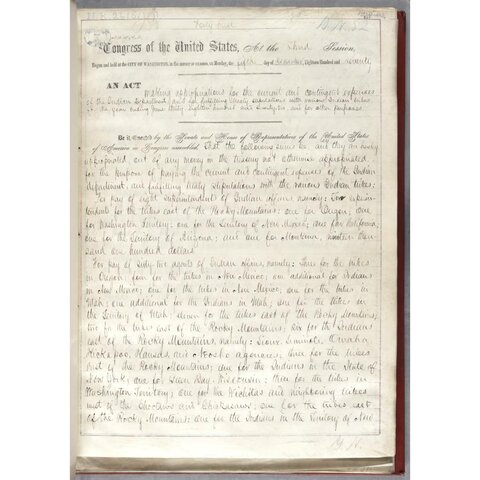 Forty first
Congress of the United States, At the Third Session,
Begun and held at the CITY OF WASHINGTON, in the DISTRICT OF COLUMBIA, on Monday, the fifth day of December, Eighteen Hundred and seventy
AN ACT making appropriations for the current and contingent expenses
of the Indian Department, and for fulfilling treaty stipulations with various Indian tribes,
for the year ending June thirty, eighteen hundred and seventy-two, and for other purposes.
Be it enacted by the Senate and House of Representatives of the United States
of America in Congress assembled, That the following sums be, and they are hereby
appropriated, out of any money in the treasury not otherwise appropriated
for the purpose of paying the current and contingent expenses of the Indian
department, and fulfilling treaty stipulations with the various Indian tribes:
For pay of eight superintendents of Indian affairs, namely: Two superin-
tendents for the tribes east of the Rocky Mountains; one for Oregon; one
for Washington Territory; one for the Territory of New Mexico; one for California;
one for the Territory of Arizona; and one for Montana, thou-
sand one hundred dollars.
For pay of sixty-two agents of Indian affairs, namely: Three for the tribes
in Oregon; four for the tribes in New Mexico; one additional for Indians
in New Mexico; one for the tribes in New Mexico; one for the tribes in
Utah; one additional for the Indians in Utah; one for the tribes in
the Territory of Utah; eleven for the tribes east of the Rocky Mountains;
two for the tribes east of the Rocky Mountains; six for the Indians
east of the Rocky Mountains, namely: Sioux, Seminole, Omaha,
Kickapoo, Kansas, and Neosho agencies; three for the tribes
east of the Rocky Mountains; one for the Indians in the State of
New York; one for Green Bay, Wisconsin; three for the tribes in
Washington Territory; one for the Wichitas and neighboring tribes
west of the Choctaws and Chickasaws; one for the tribes east
of the Rocky Mountains; one for the Indians in the Territory of New